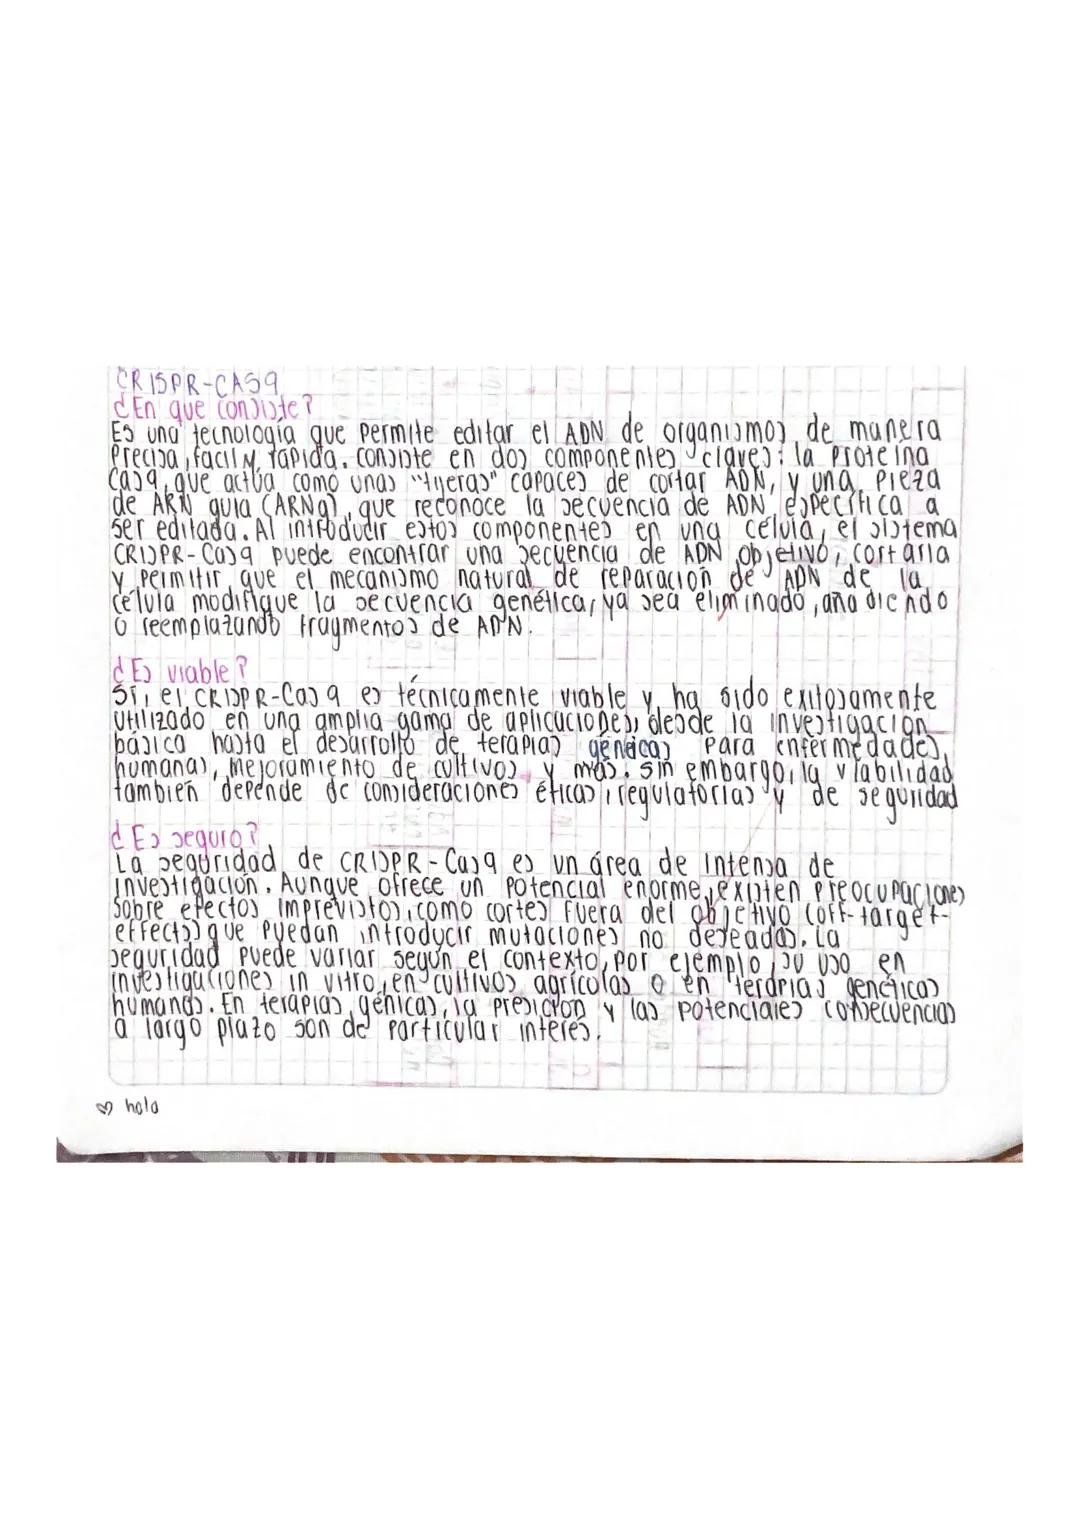 CRISPR-CAS9
¿En que consiste?
Es una tecnología que permite editar el ADN de organismos de manera
Precisa, facil y rápida. consiste en dos componentes claves: la proteína
Cas9, que actúa como unas "tijeras" capaces de cortar ADN, y una pieza
de ARN guia (ARNg), que reconoce la secuencia de ADN específica a
ser editada. Al introducir estos componentes en una célula, el sistema
CRISPR-Cas9 puede encontrar una secuencia de ADN objetivo, cortarla
y permitir que el mecanismo natural de reparación de ADN de la
célula modifique la secuencia genética, ya sea eliminado, añadiendo
o reemplazando fragmentos de ADN.
¿Es viable?
Sí, el CRISPR-Cas9 es técnicamente viable y ha sido exitosamente
utilizado en una amplia gama de aplicaciones, desde la investigación
básica hasta el desarrollo de terapias génicas para enfermedades
humanas, mejoramiento de cultivos y más. sin embargo, la viabilidad
también depende de consideraciones éticas, regulatorias y de seguridad
¿Es seguro?
La seguridad de CRISPR-Cas9 es un área de intensa de
investigación. Aunque ofrece un potencial enorme, existen preocupaciones
sobre efectos imprevistos, como cortes fuera del objetivo (off-target-
effects) que puedan introducir mutaciones no deseadas. La
seguridad puede variar según el contexto, por ejemplo, su uso en
investigaciones in vitro, en cultivos agrícolas o en terapias genéticas
humanas. En terapias génicas, la presicion y las potenciales consecuencias
a largo plazo son de particular interés.
♡ hola